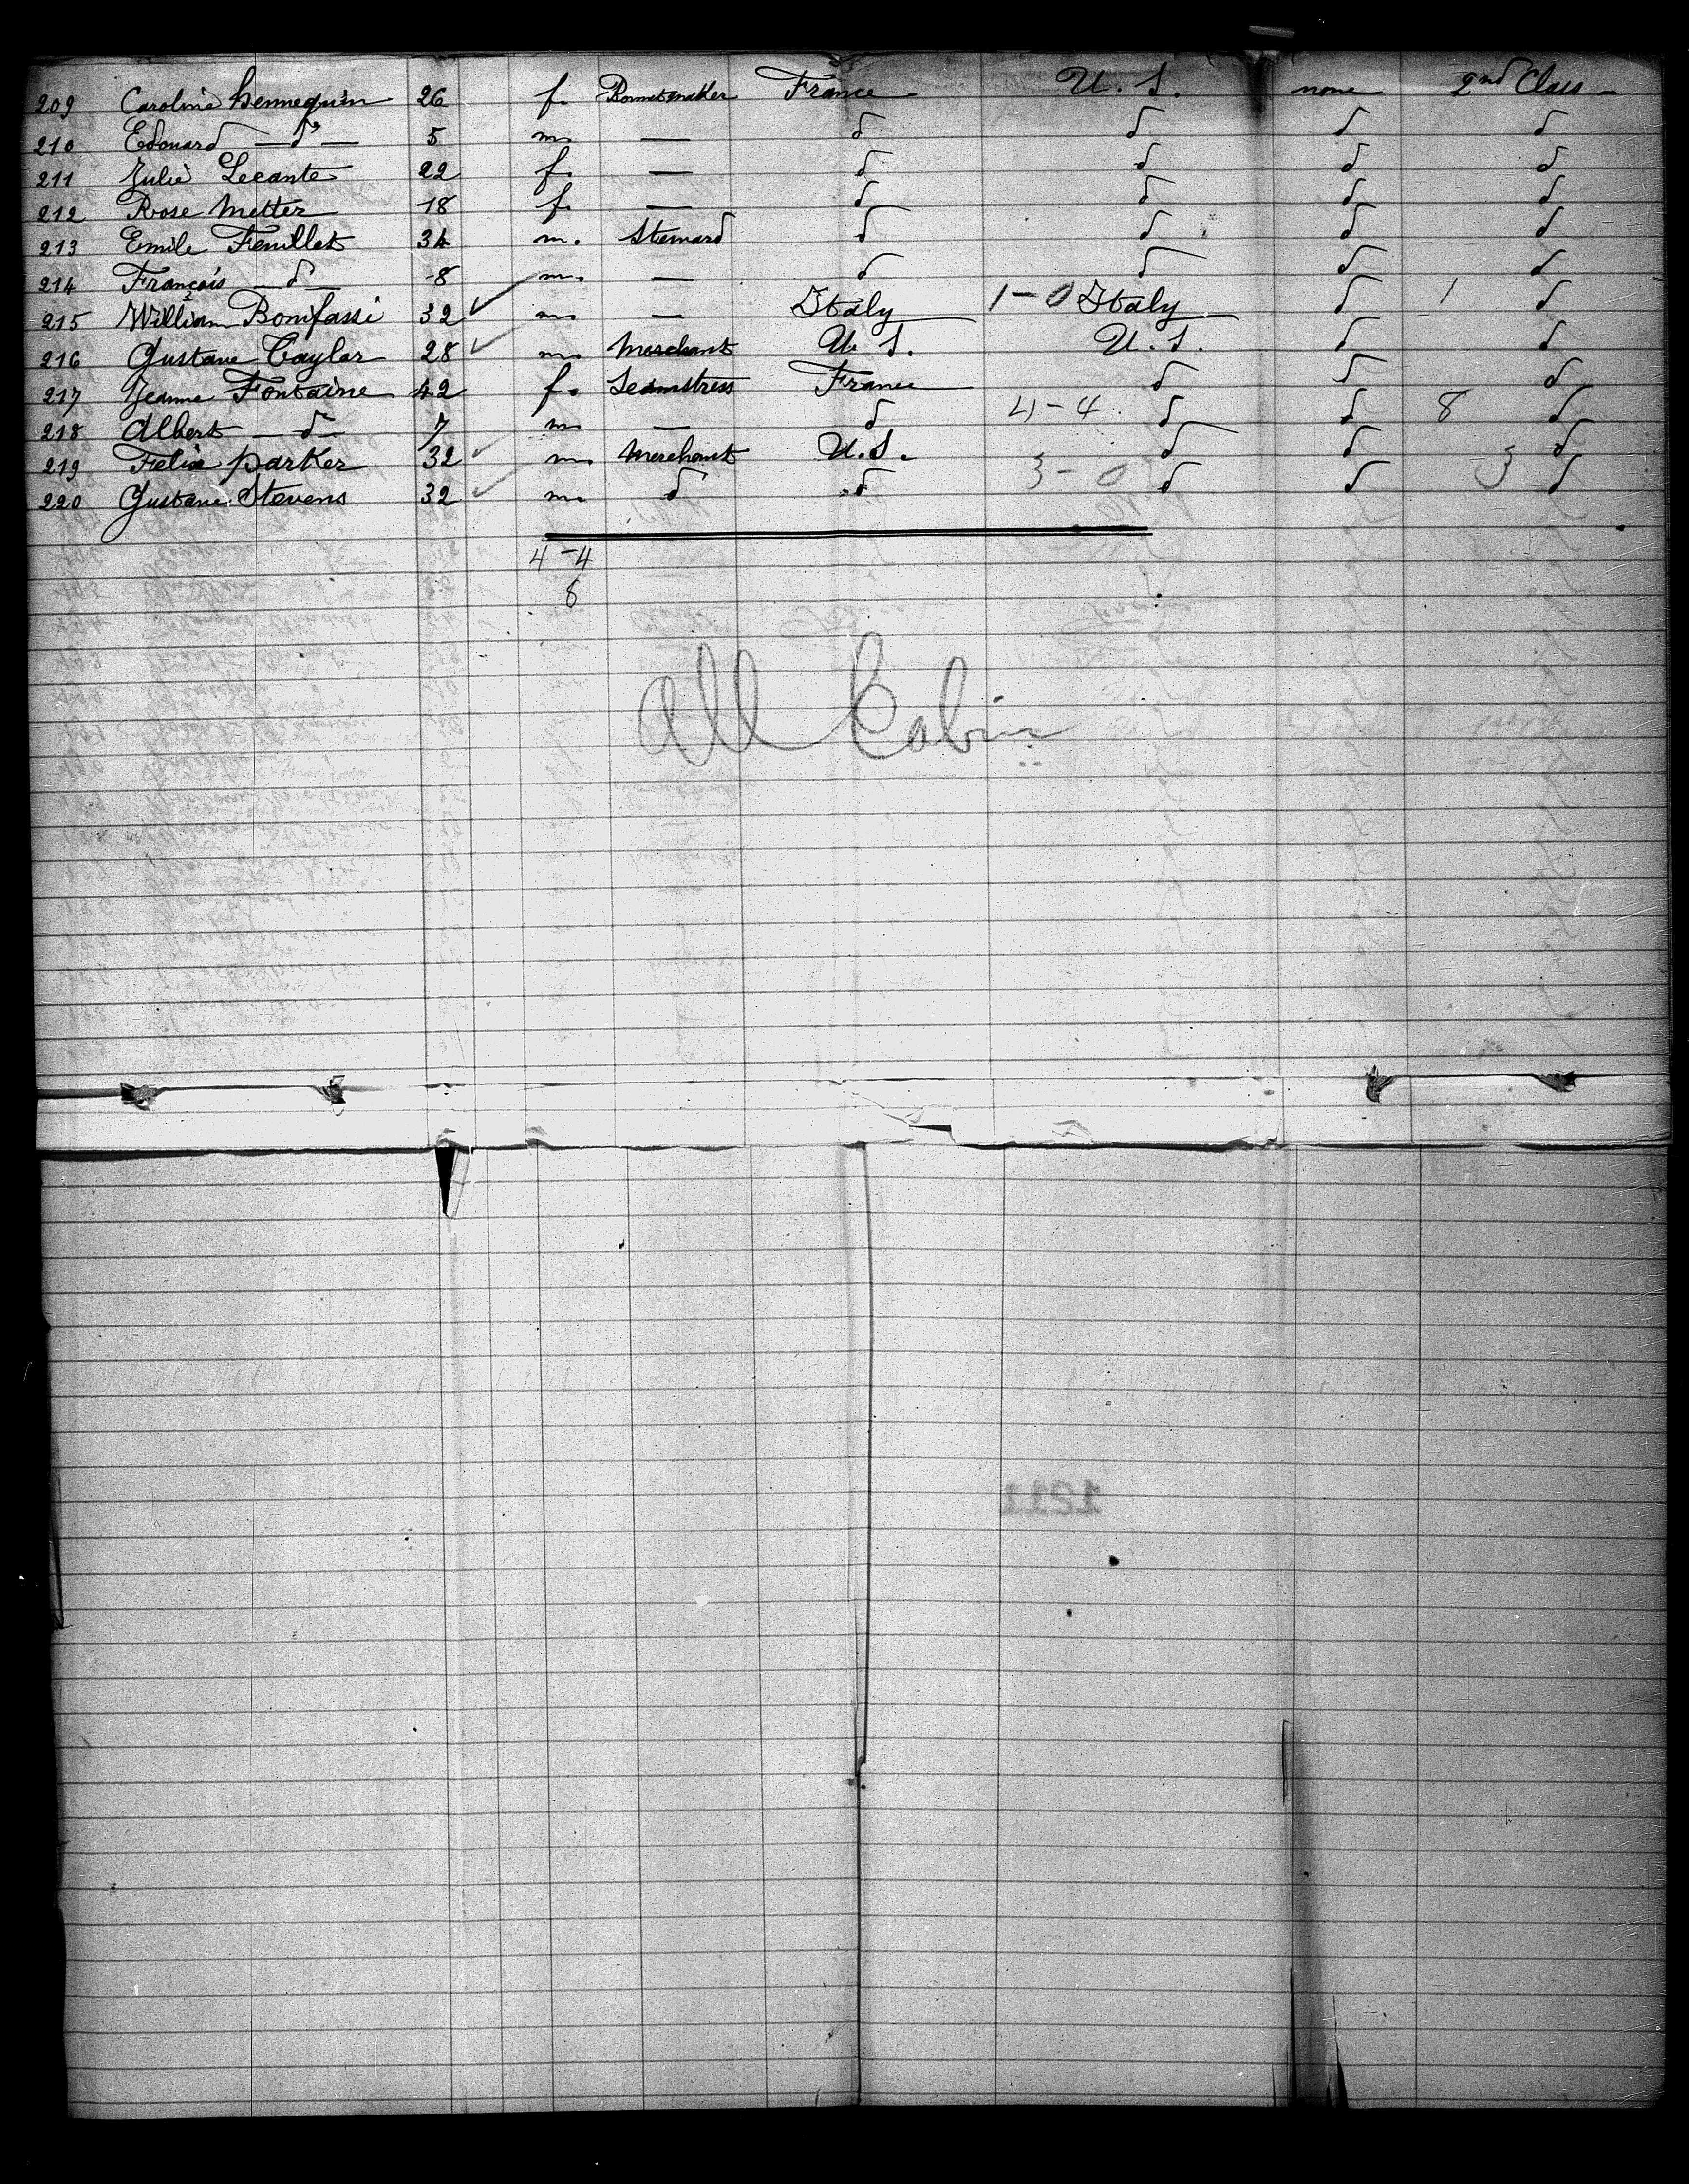 209 Caroline Hennequin 26 f. Bonnetmaker France U. S. none 2nd Class
210 Edouard — do — 5 m. — d d d d
211 Julie Lecante 22 f. — d d d d
212 Rose Metter 18 f. — d d d d
213 Emile Feuillet 34 m. Steward d d d d
214 François — d — 8 m. — d d d d
215 William Bonifassi 32 m. — Italy 1-0 Italy d 1 d
216 Gustave Taylor 28 m. Merchant U. S. U. S. d d
217 Jeanne Fontaine 42 f. Seamstress France d d d
218 Albert — d — 7 m. — d 4-4 d d 8 d
219 Felix Parker 32 m. Merchant U. S. d d d
220 Gustave Stevens 32 m. d d 3-0 d d 3 d
4-4
8
All Cabin